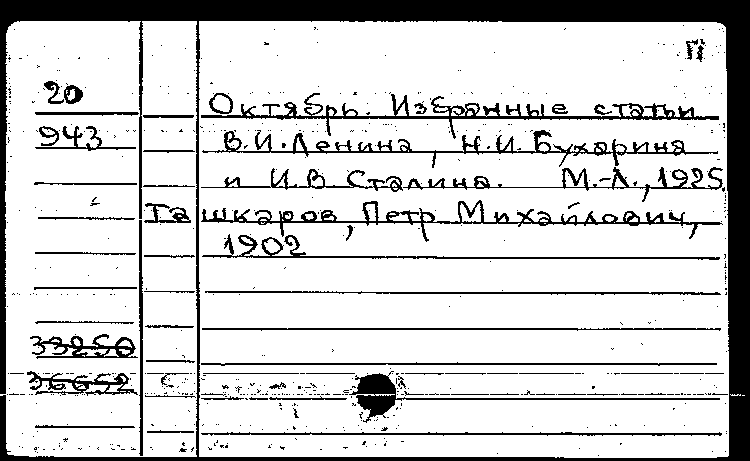 П
20 Октябрь. Избранные статьи
943 В.И.Ленина, Н.И.Бухарина
и И.В. Сталина. М.-Л., 1925
Ташкаров, Петр Михайлович,
1902
33250
36652